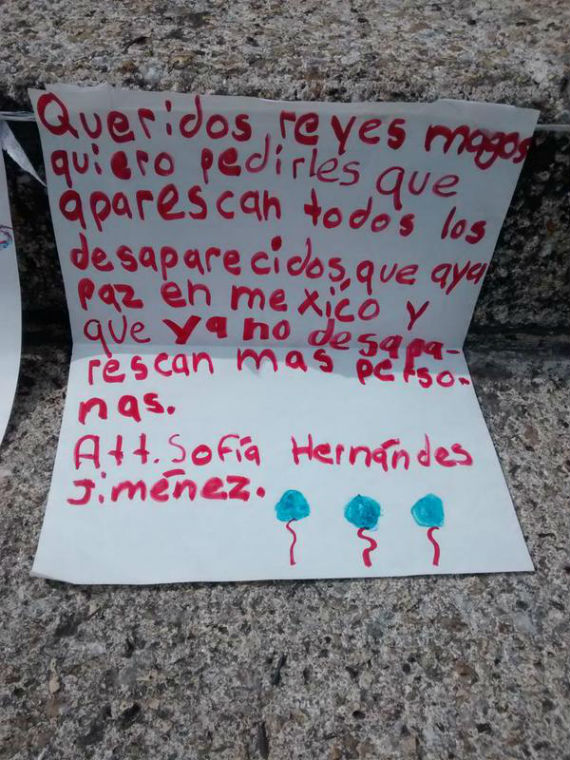 Queridos reyes magos
quiero pedirles que
aparescan todos los
desaparecidos, que aya
paz en mexico y
que ya no desapa-
rescan mas perso-
nas.
Att. Sofía Hernándes
Jiménez.